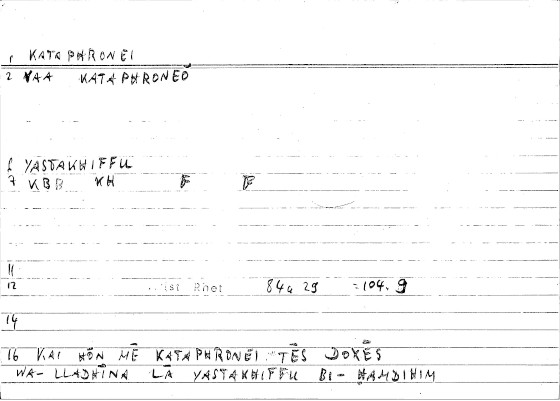 1 KATAPHRONEI
2 VAA KATAPHRONEŌ
6 YASTAKHIFFU
7 KBB KH F F
11
12 ..ist Rhet 84a 29 =104.9
14
16 KAI HŌN MĒ KATAPHRONEI TĒS DOXĒS
WA-LLADHĪNA LĀ YASTAKHIFFU BI-ḤAMDIHIM